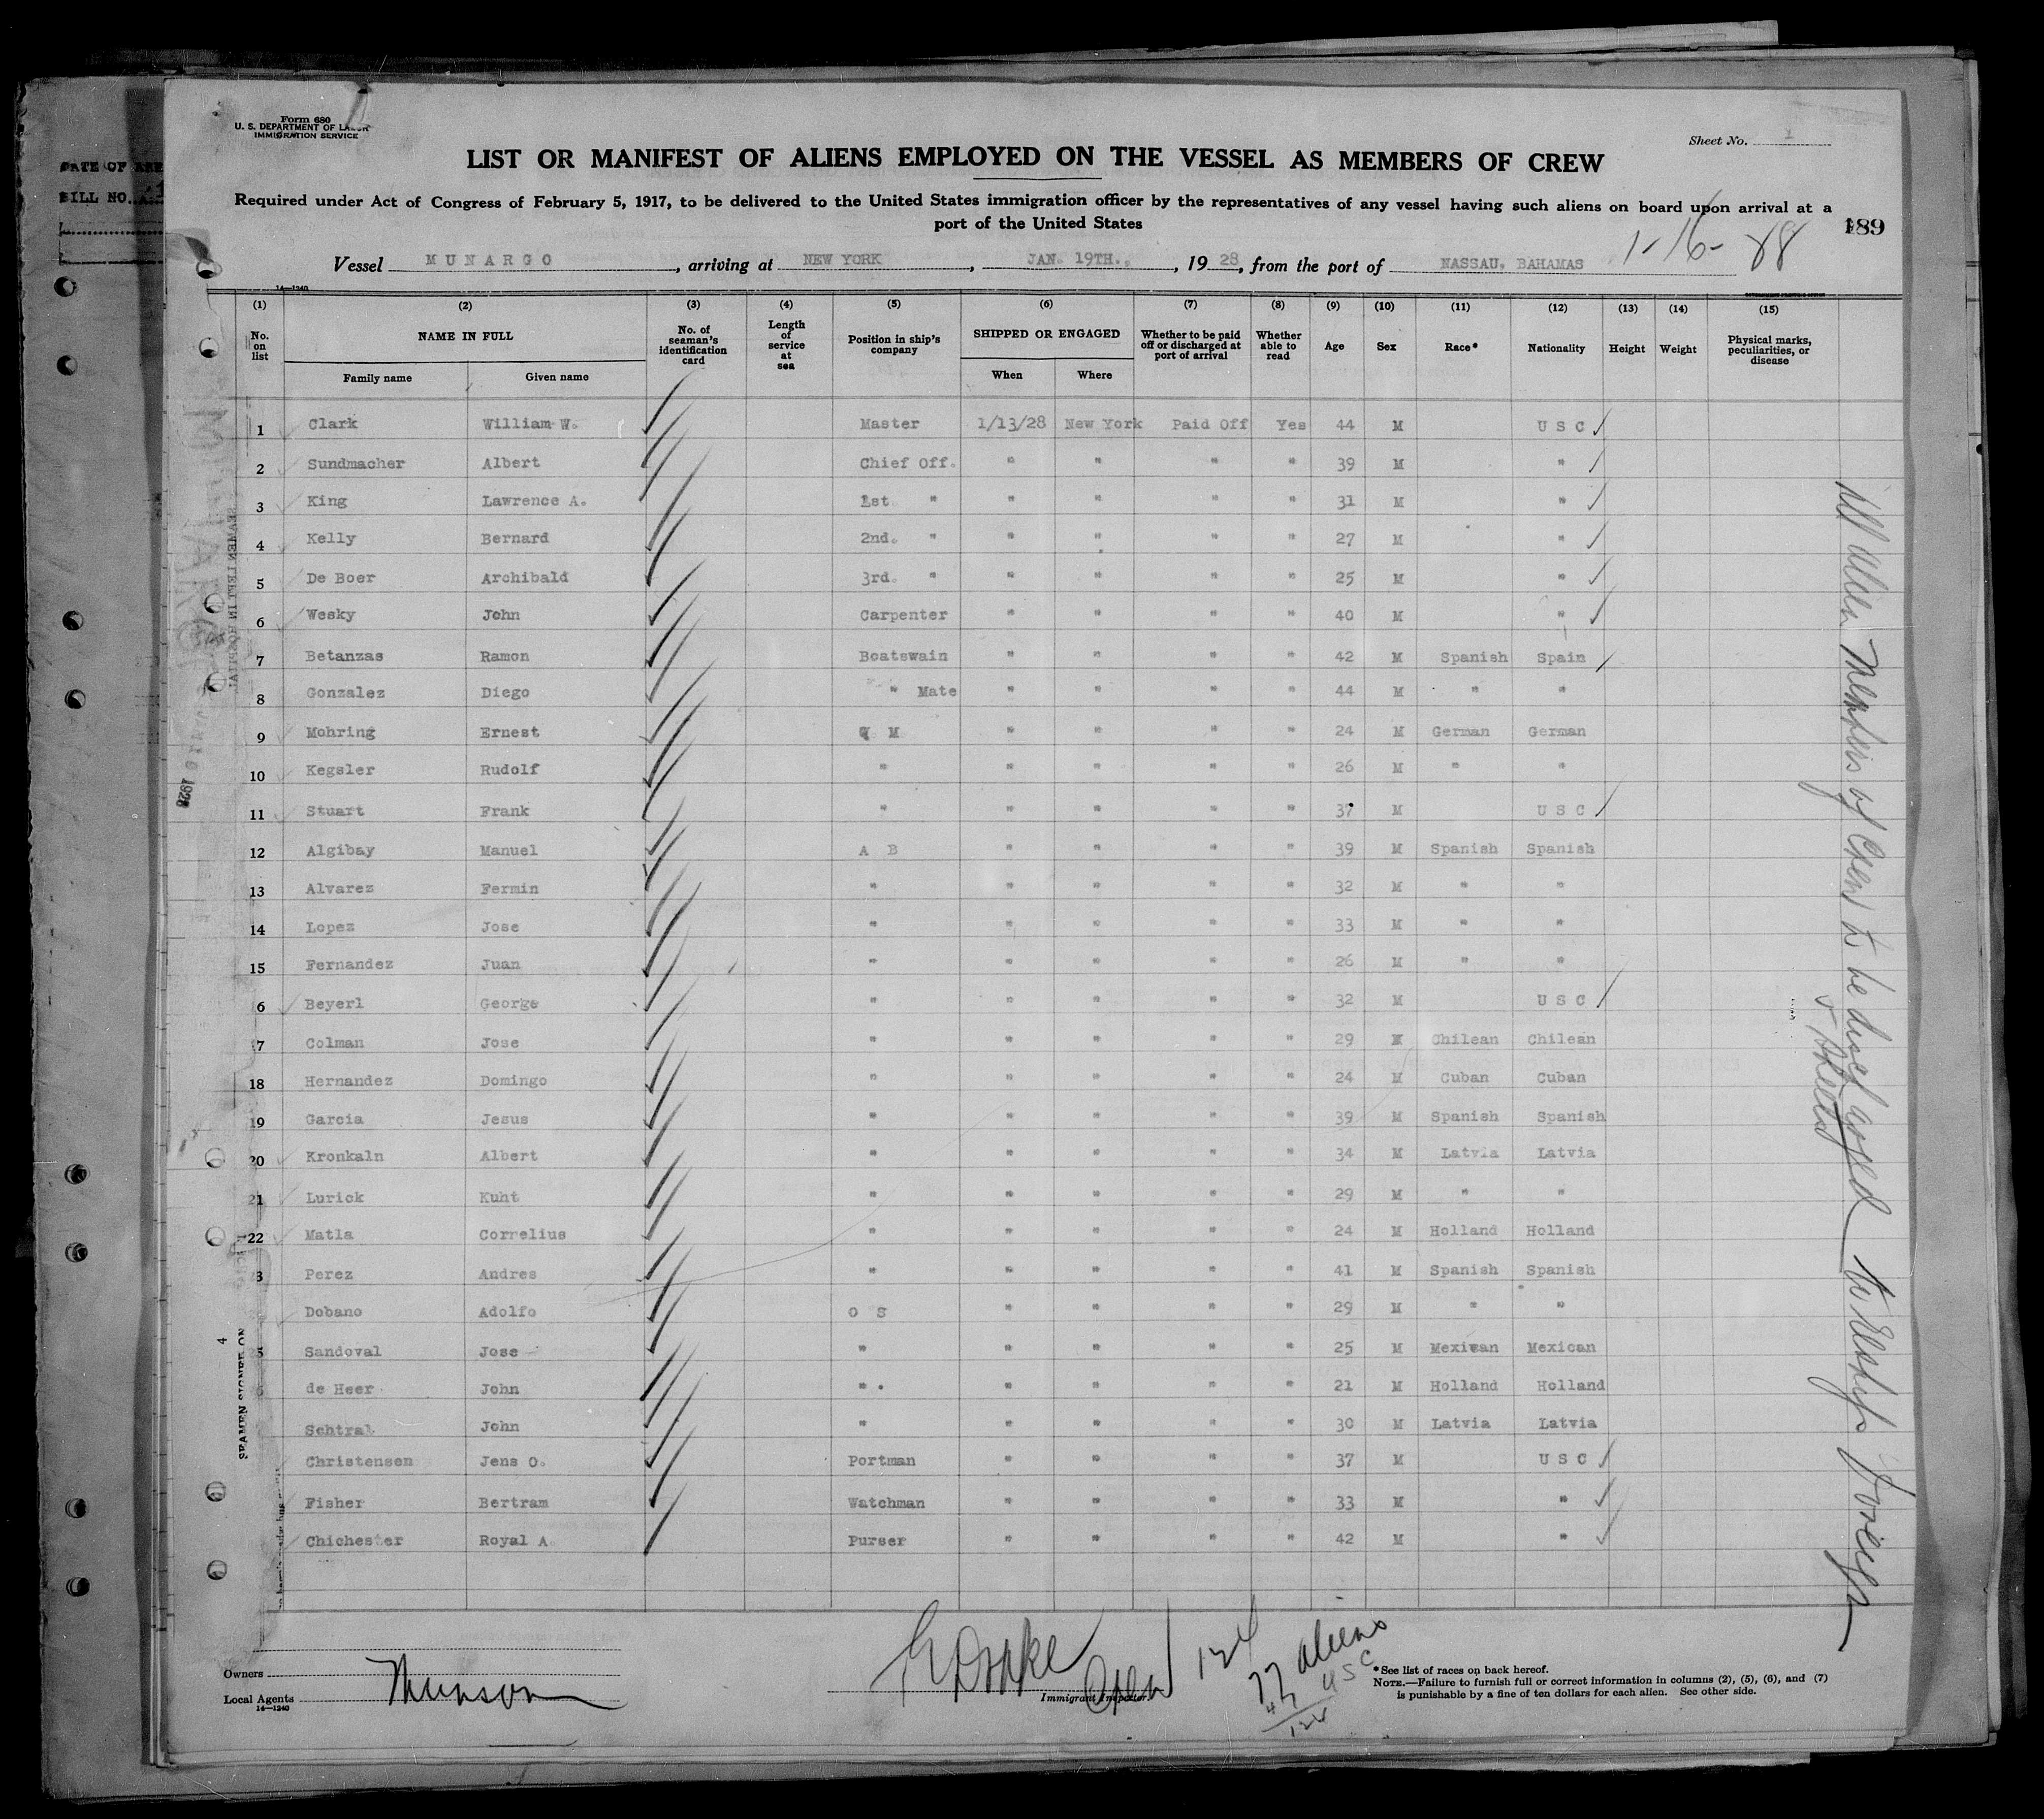 Form 680
U. S. DEPARTMENT OF LABOR
IMMIGRATION SERVICE
Sheet No. 1
LIST OR MANIFEST OF ALIENS EMPLOYED ON THE VESSEL AS MEMBERS OF CREW
Required under Act of Congress of February 5, 1917, to be delivered to the United States immigration officer by the representatives of any vessel having such aliens on board upon arrival at a
port of the United States
189
1-16-
Vessel MUNARGO, arriving at NEW YORK, JAN. 19TH., 1928, from the port of NASSAU, BAHAMAS
14—1240
(1) (2) (3) (4) (5) (6) (7) (8) (9) (10) (11) (12) (13) (14) (15)
No. on list NAME IN FULL No. of seaman's identification card Length of service at sea Position in ship's company SHIPPED OR ENGAGED Whether to be paid off or discharged at port of arrival Whether able to read Age Sex Race* Nationality Height Weight Physical marks, peculiarities, or disease
Family name Given name When Where
1 Clark William W. Master 1/13/28 New York Paid Off Yes 44 M U S C
2 Sundmacher Albert Chief Off. " " " " 39 M "
3 King Lawrence A. 1st " " " " " 31 M "
4 Kelly Bernard 2nd. " " " " " 27 M "
5 De Boer Archibald 3rd. " " " " " 25 M "
6 Wesky John Carpenter " " " " 40 M "
7 Betanzas Ramon Boatswain " " " " 42 M Spanish Spain
8 Gonzalez Diego " Mate " " " " 44 M " "
9 Mohring Ernest Q M " " " " 24 M German German
10 Kegsler Rudolf " " " " " 26 M " "
11 Stuart Frank " " " " " 37 M U S C
12 Algibay Manuel A B " " " " 39 M Spanish Spanish
13 Alvarez Fermin " " " " " 32 M " "
14 Lopez Jose " " " " " 33 M " "
15 Fernandez Juan " " " " " 26 M " "
6 Beyerl George " " " " " 32 M U S C
17 Colman Jose " " " " " 29 M Chilean Chilean
18 Hernandez Domingo " " " " " 24 M Cuban Cuban
19 Garcia Jesus " " " " " 39 M Spanish Spanish
20 Kronkaln Albert " " " " " 34 M Latvia Latvia
21 Lurick Kuht " " " " " 29 M " "
22 Matla Correlius " " " " " 24 M Holland Holland
3 Perez Andres " " " " " 41 M Spanish Spanish
Dobano Adolfo O S " " " " 29 M " "
25 Sandoval Jose " " " " " 25 M Mexican Mexican
de Heer John " " " " " 21 M Holland Holland
Schtral John " " " " " 30 M Latvia Latvia
Christensen Jens O. Portman " " " " 37 M U S C
Fisher Bertram Watchman " " " " 33 M "
Chichester Royal A. Purser " " " " 42 M "
All alien members of Crew to be discharged
SEAMEN LEFT IN HOSPITAL
1928
SEAMEN SIGNED ON
4
DATE OF
BILL NO.
Owners
Local Agents Munson
14—1240
Immigrant Inspector
Crew 124
77 aliens
47 USC
124
*See list of races on back hereof.
NOTE.—Failure to furnish full or correct information in columns (2), (5), (6), and (7)
is punishable by a fine of ten dollars for each alien. See other side.